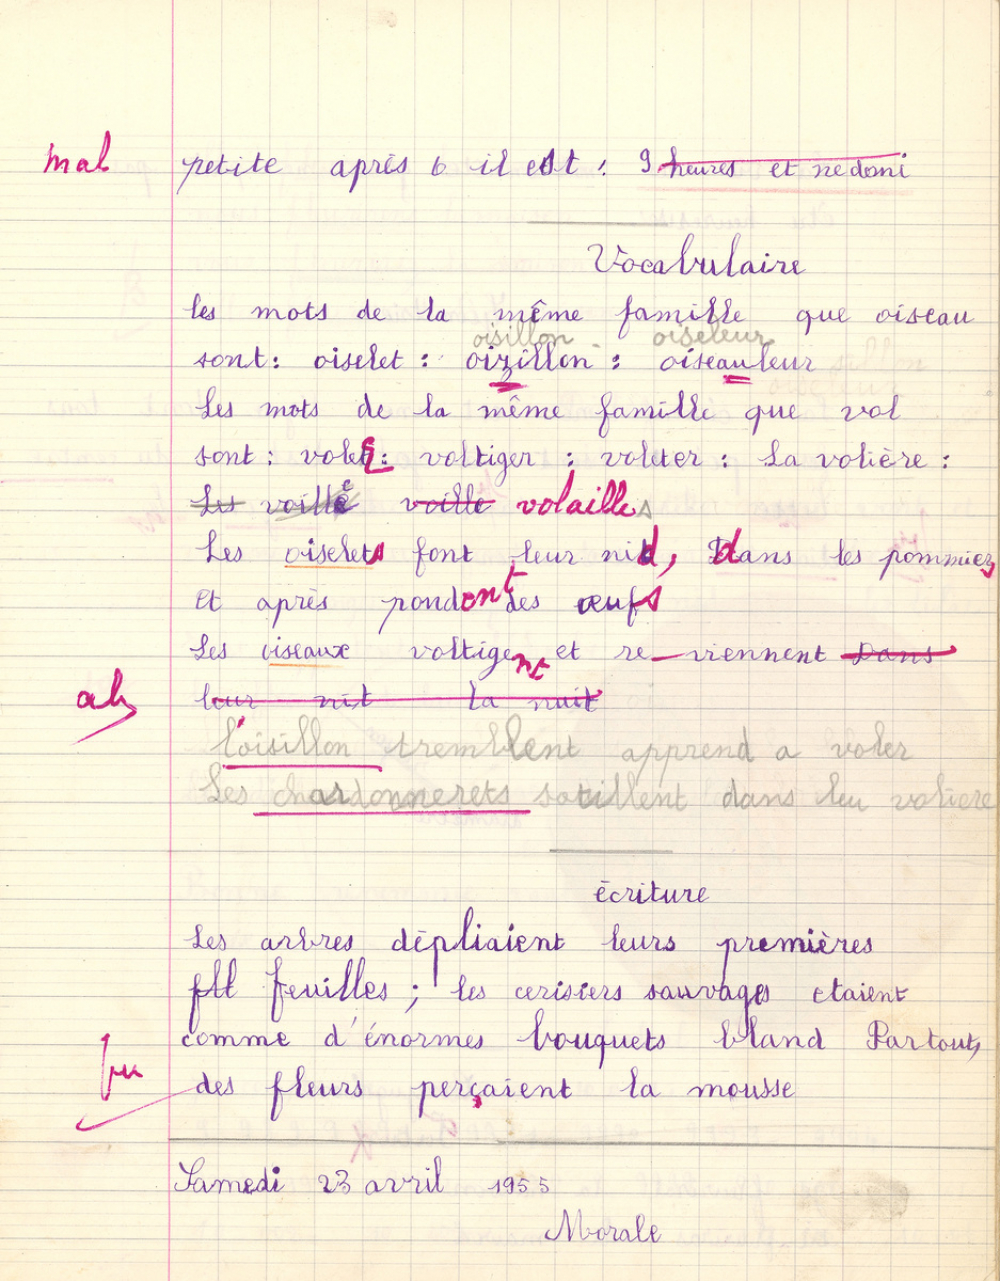 mal petite après 6 il est : 9 heures et nedemi
Vocabulaire
Les mots de la même famille que oiseau
oisillon - oiseleur
sont : oiselet : oizillon : oiseauleur
Les mots de la même famille que vol
sont : volet : voltiger : voleter : La volière :
Les voille voille volailles
Les oiselets font leur nid, Dans les pommiers
Et après pondent des œufs
Les oiseaux voltigent et re-viennent Dans
leur nit la nuit
l'oisillon tremblent apprend a voler
Les chardonnerets sotillent dans leu voliere
écriture
Les arbres dépliaient leurs premières
feuilles ; les cerisiers sauvages etaient
comme d'énormes bouquets bland Partout,
des fleurs perçaient la mousse
Samedi 23 avril 1955
Morale